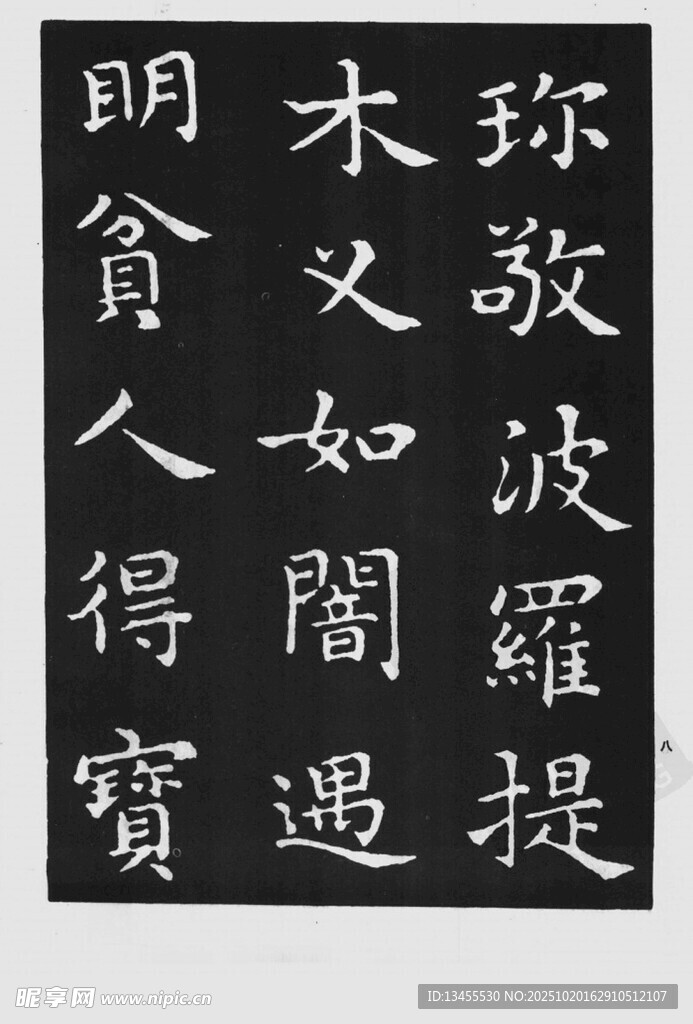 珎敬波羅提
木叉如闇遇
明貧人得寶
八
昵享网 www.nipic.cn
ID:13455530 NO:20251020162910512107